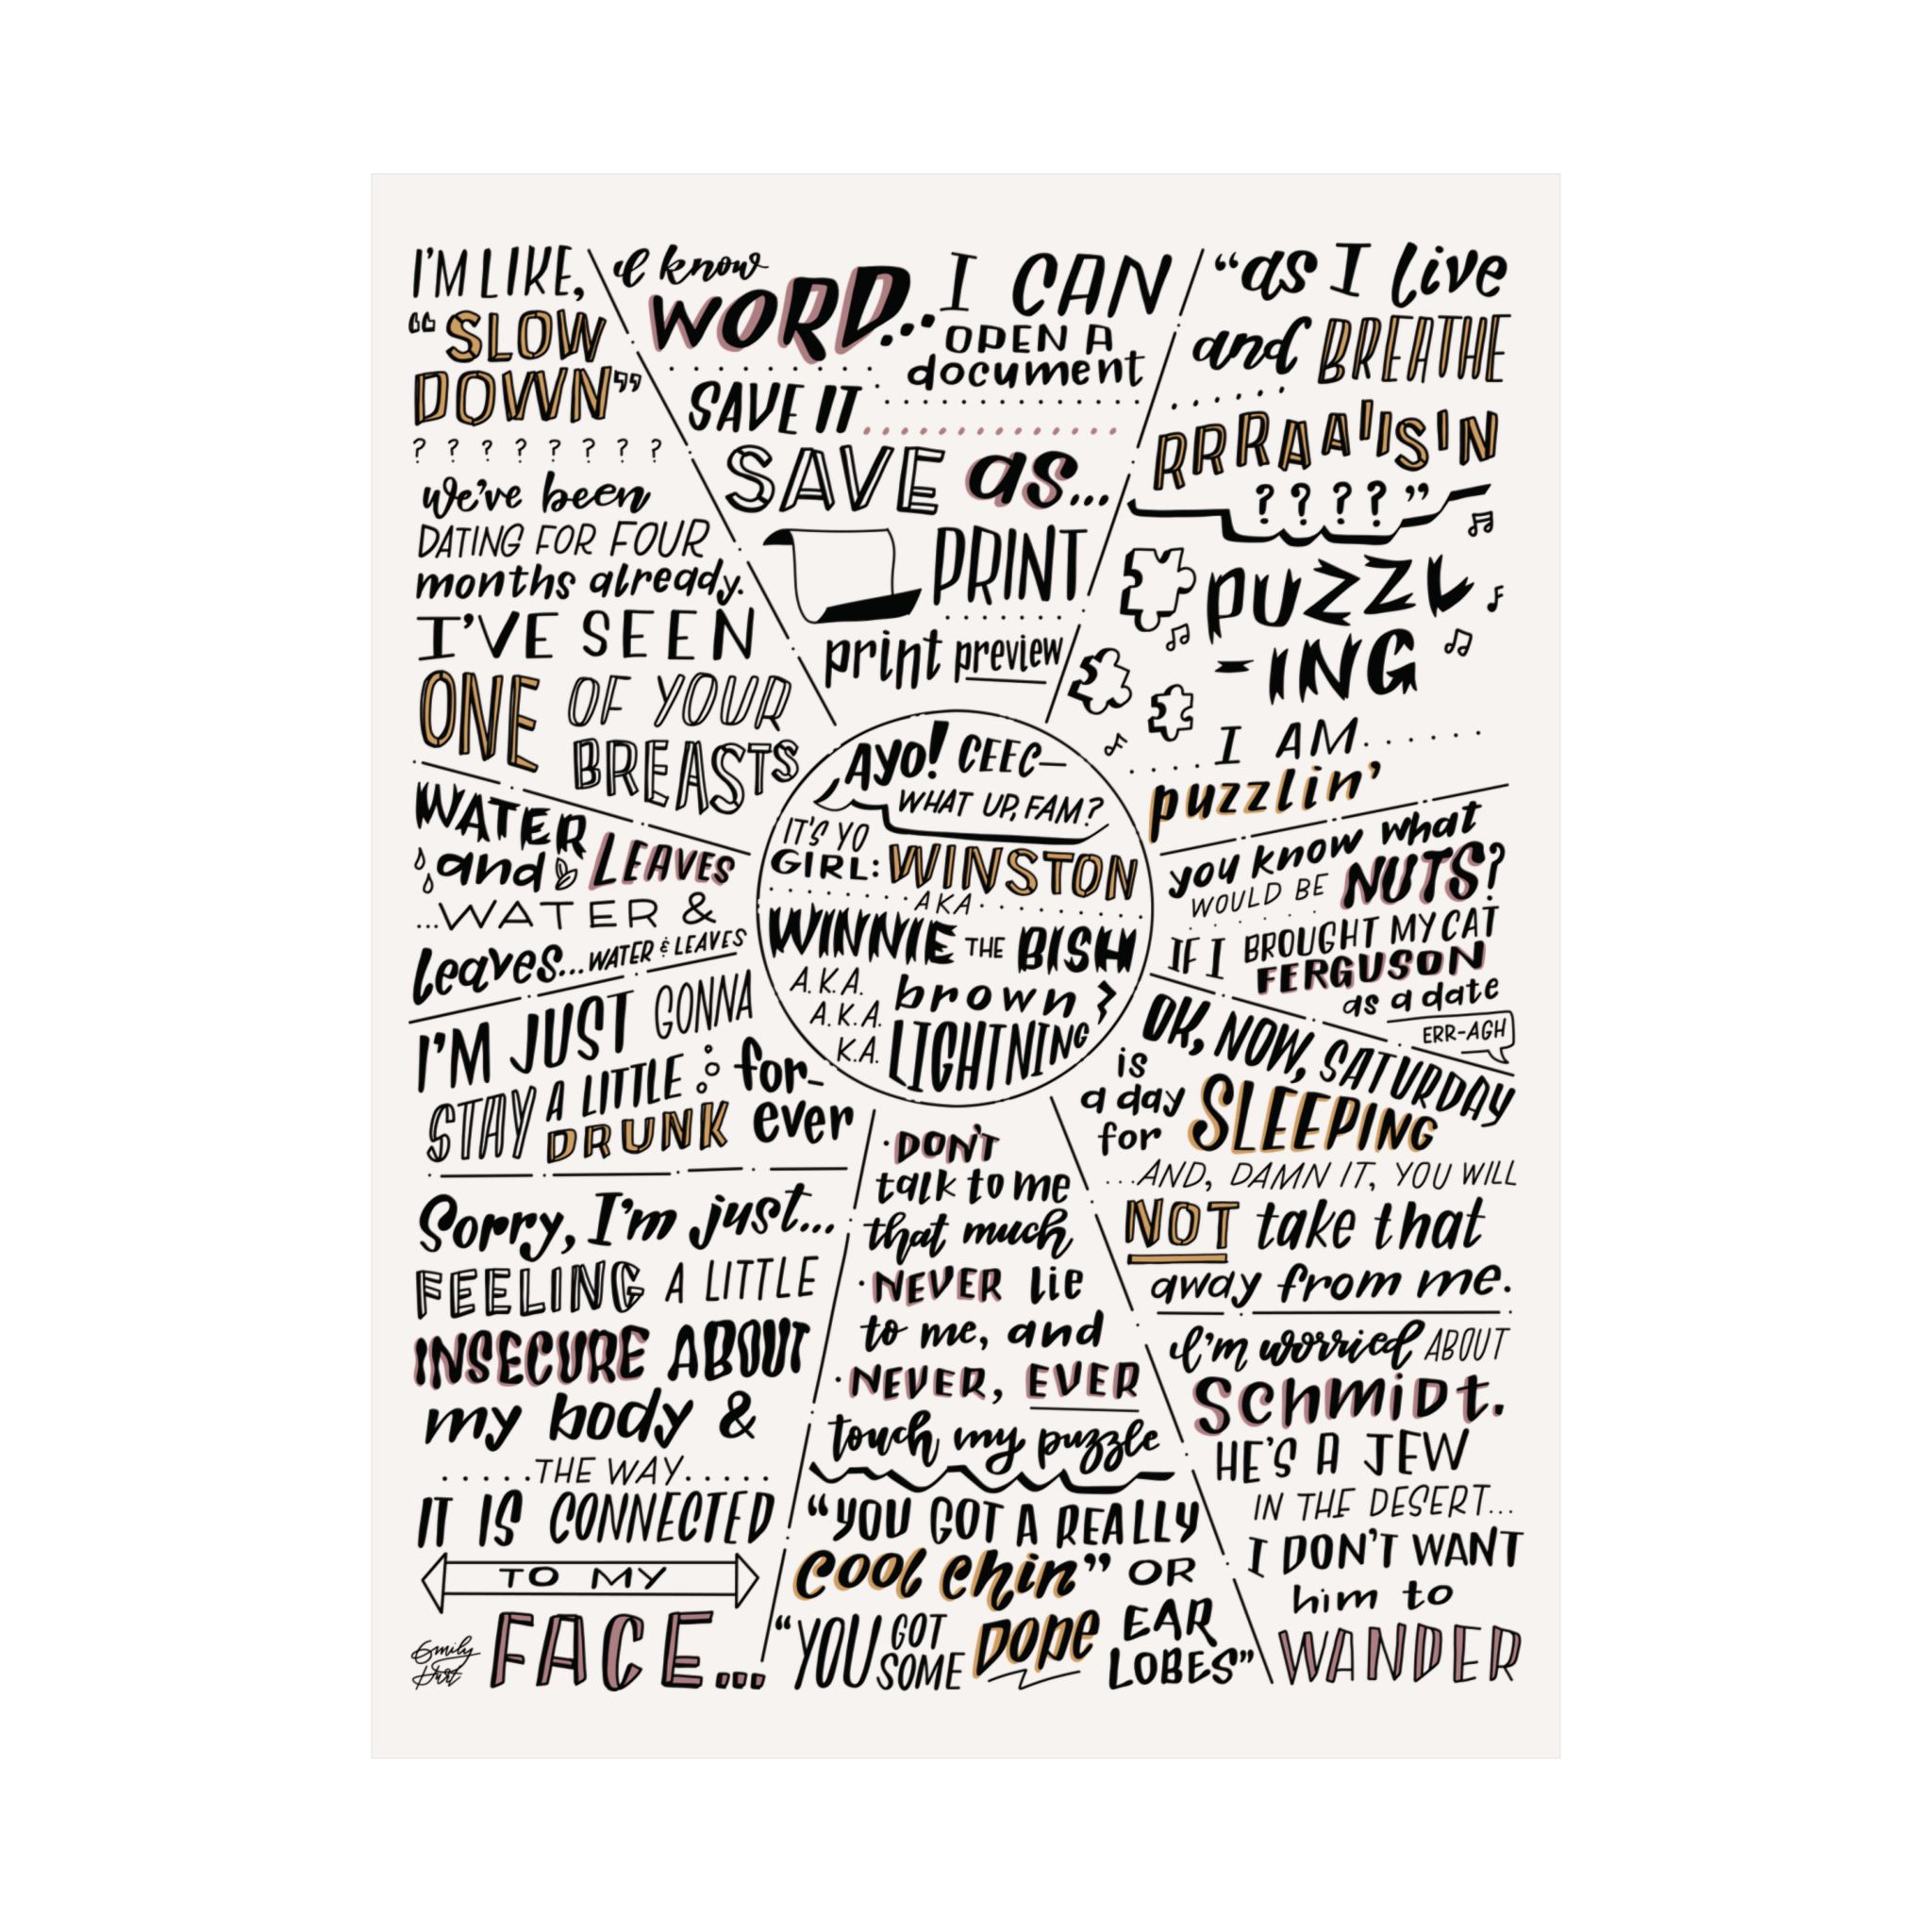 I'M LIKE,
“SLOW
DOWN”
? ? ? ? ? ? ? ?
we've been
DATING FOR FOUR
months already.
I'VE SEEN
ONE OF YOUR
BREASTS
I know
WORD...
I CAN
OPEN A
document
SAVE IT
SAVE as...
PRINT
print preview
“as I live
and BREATHE
RRRAAIISIN
? ? ? ?”
PUZZL
-ING
I AM
puzzlin'
AYO! CEEC—
WHAT UP, FAM?
IT'S YO
GIRL: WINSTON
AKA
WINNIE THE BISH
A.K.A.
A.K.A.
K.A.
brown
LIGHTNING
WATER
and LEAVES
...WATER &
leaves... WATER & LEAVES
you know what
WOULD BE NUTS?
IF I BROUGHT MY CAT
FERGUSON
as a date
ERR-AGH
I'M JUST GONNA
STAY A LITTLE
DRUNK
for-
ever
OK, NOW, SATURDAY
is
a day
for SLEEPING
...AND, DAMN IT, YOU WILL
NOT take that
away from me.
Sorry, I'm just...
FEELING A LITTLE
INSECURE ABOUT
my body &
.....THE WAY.....
IT IS CONNECTED
TO MY
FACE...
·DON'T
talk to me
that much
·NEVER lie
to me, and
·NEVER, EVER
touch my puzzle
“YOU GOT A REALLY
cool chin” OR
“YOU GOT
SOME DOPE EAR
LOBES”
I'm worried ABOUT
SCHMIDT.
HE'S A JEW
IN THE DESERT...
I DON'T WANT
him to
WANDER
Emily